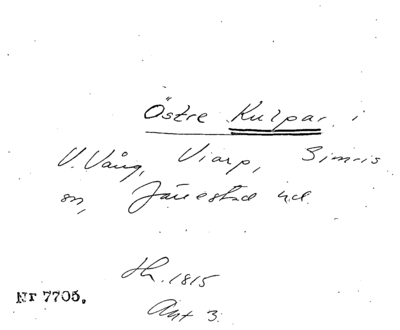 Östre Kulpar i
V. Vång, Viarp, Simris
sn, Järrestad hd.
Sk. 1815
Nr 7705.
Akt 3.